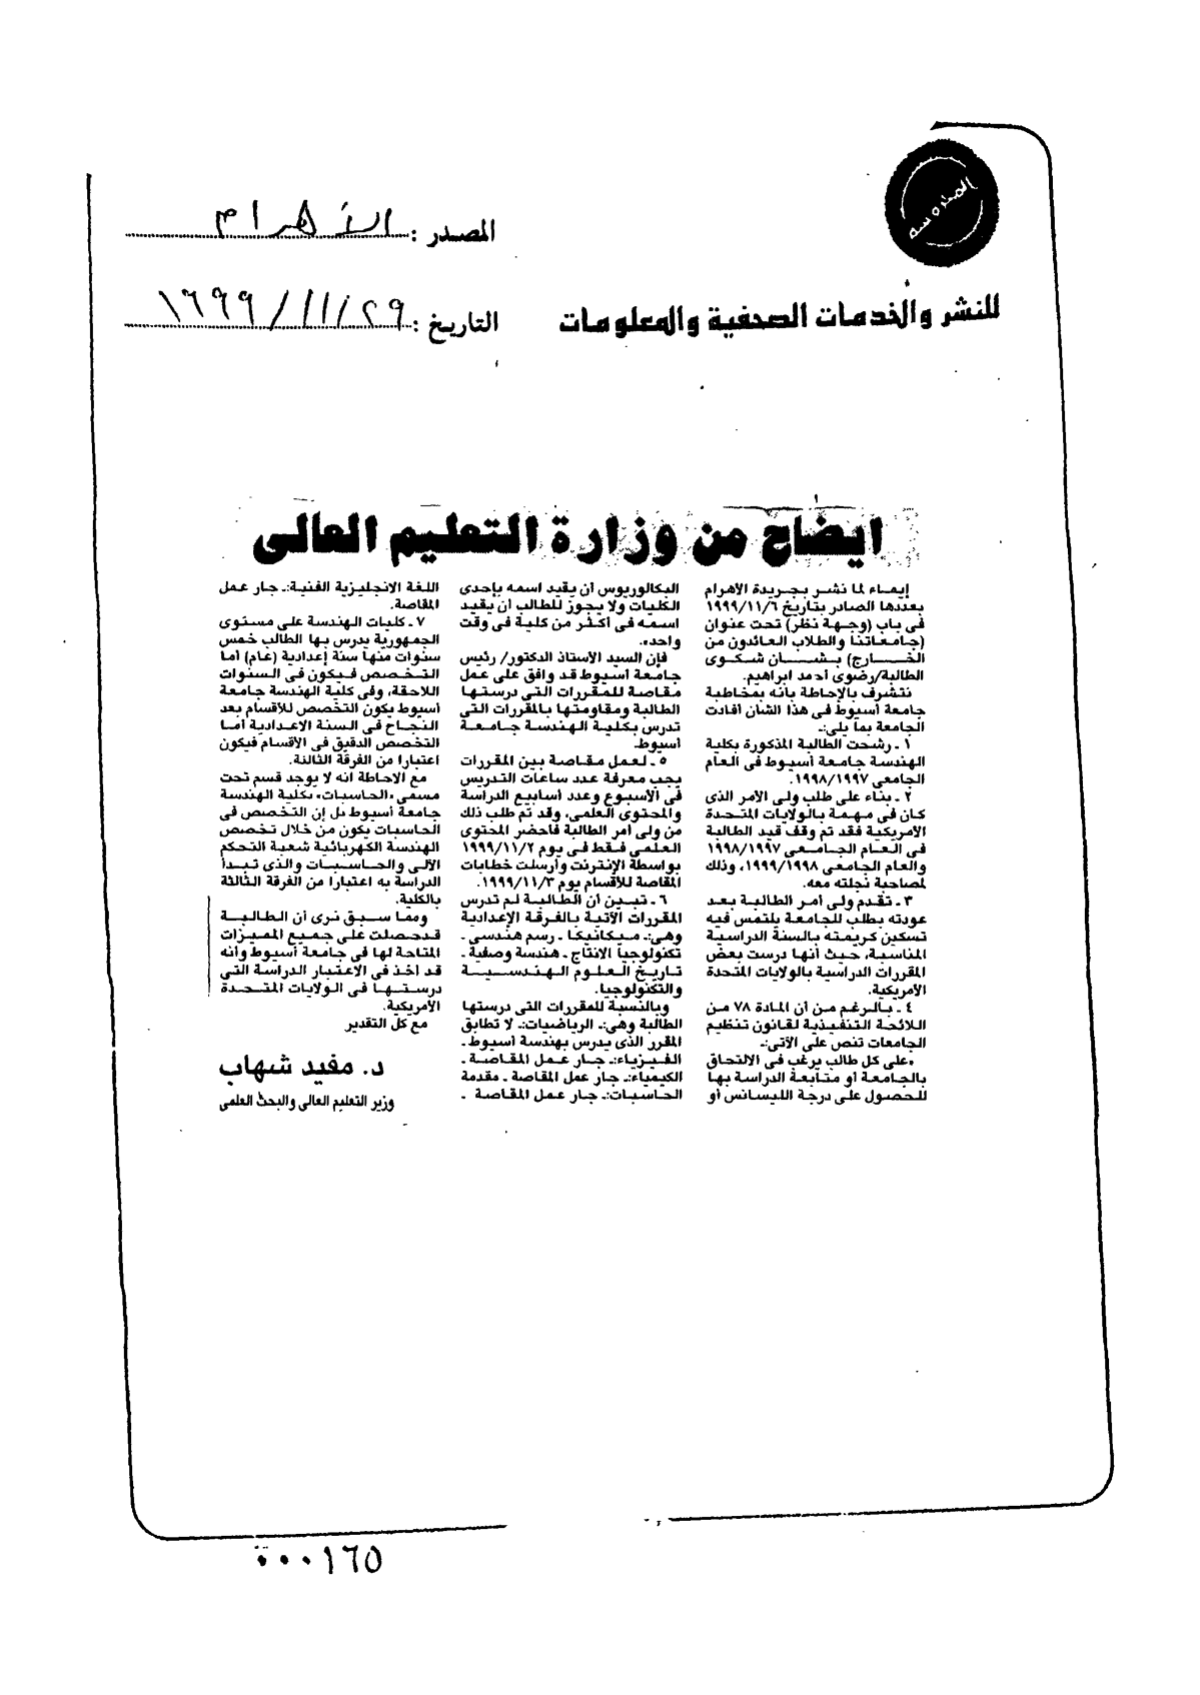 المحروسة
المصدر : الأهرام
للنشر والخدمات الصحفية والمعلومات
التاريخ : ٢٩/١١/١٩٩٩
ايضاح من وزارة التعليم العالى
إيماء لما نشر بجريدة الأهرام
بعددها الصادر بتاريخ ١٩٩٩/١١/٦
فى باب (وجهة نظر) تحت عنوان
(جامعاتنا والطلاب العائدون من
الخارج) بشأن شكوى
الطالبة/رضوى أحمد ابراهيم.
نتشرف بالإحاطة بأنه بمخاطبة
جامعة أسيوط فى هذا الشأن أفادت
الجامعة بما يلى:ـ
١ ـ رشحت الطالبة المذكورة بكلية
الهندسة جامعة أسيوط فى العام
الجامعى ١٩٩٨/١٩٩٧.
٢ ـ بناء على طلب ولى الأمر الذى
كان فى مهمة بالولايات المتحدة
الأمريكية فقد تم وقف قيد الطالبة
فى العام الجامعى ١٩٩٨/١٩٩٧
والعام الجامعى ١٩٩٩/١٩٩٨، وذلك
لمصاحبة نجلته معه.
٣ ـ تقدم ولى أمر الطالبة بعد
عودته بطلب للجامعة يلتمس فيه
تسكين كريمته بالسنة الدراسية
المناسبة، حيث أنها درست بعض
المقررات الدراسية بالولايات المتحدة
الأمريكية.
٤ ـ بالرغم من أن المادة ٧٨ من
اللائحة التنفيذية لقانون تنظيم
الجامعات تنص على الآتى:ـ
«على كل طالب يرغب فى الالتحاق
بالجامعة أو متابعة الدراسة بها
للحصول على درجة الليسانس أو
البكالوريوس أن يقيد اسمه بإحدى
الكليات ولا يجوز للطالب أن يقيد
اسمه فى أكثر من كلية فى وقت
واحد».
فإن السيد الأستاذ الدكتور/ رئيس
جامعة أسيوط قد وافق على عمل
مقاصة للمقررات التى درستها
الطالبة ومقاومتها بالمقررات التى
تدرس بكلية الهندسة جامعة
أسيوط.
٥ ـ لعمل مقاصة بين المقررات
يجب معرفة عدد ساعات التدريس
فى الأسبوع وعدد أسابيع الدراسة
والمحتوى العلمى، وقد تم طلب ذلك
من ولى أمر الطالبة فأحضر المحتوى
العلمى فقط فى يوم ١٩٩٩/١١/٢
بواسطة الإنترنت وأرسلت خطابات
المقاصة للأقسام يوم ١٩٩٩/١١/٣.
٦ ـ تبين أن الطالبة لم تدرس
المقررات الآتية بالفرقة الإعدادية
وهى:ـ ميكانيكا ـ رسم هندسى ـ
تكنولوجيا الانتاج ـ هندسة وصفية ـ
تاريخ العلوم الهندسية
والتكنولوجيا.
وبالنسبة للمقررات التى درستها
الطالبة وهى:ـ الرياضيات:ـ لا تطابق
المقرر الذى يدرس بهندسة أسيوط ـ
الفيزياء:ـ جار عمل المقاصة ـ
الكيمياء:ـ جار عمل المقاصة ـ مقدمة
الحاسبات:ـ جار عمل المقاصة ـ
اللغة الانجليزية الفنية:ـ جار عمل
المقاصة.
٧ ـ كليات الهندسة على مستوى
الجمهورية يدرس بها الطالب خمس
سنوات منها سنة إعدادية (عام) أما
التخصص فيكون فى السنوات
اللاحقة، وفى كلية الهندسة جامعة
أسيوط يكون التخصص للأقسام بعد
النجاح فى السنة الاعدادية أما
التخصص الدقيق فى الأقسام فيكون
اعتبارا من الفرقة الثالثة.
مع الاحاطة انه لا يوجد قسم تحت
مسمى «الحاسبات» بكلية الهندسة
جامعة أسيوط بل إن التخصص فى
الحاسبات يكون من خلال تخصص
الهندسة الكهربائية شعبة التحكم
الآلى والحاسبات والذى تبدأ
الدراسة به اعتبارا من الفرقة الثالثة
بالكلية.
ومما سبق نرى أن الطالبة
قد حصلت على جميع المميزات
المتاحة لها فى جامعة أسيوط وأنه
قد أخذ فى الاعتبار الدراسة التى
درستها فى الولايات المتحدة
الأمريكية.
مع كل التقدير
د. مفيد شهاب
وزير التعليم العالى والبحث العلمى
٠٠٠١٦٥